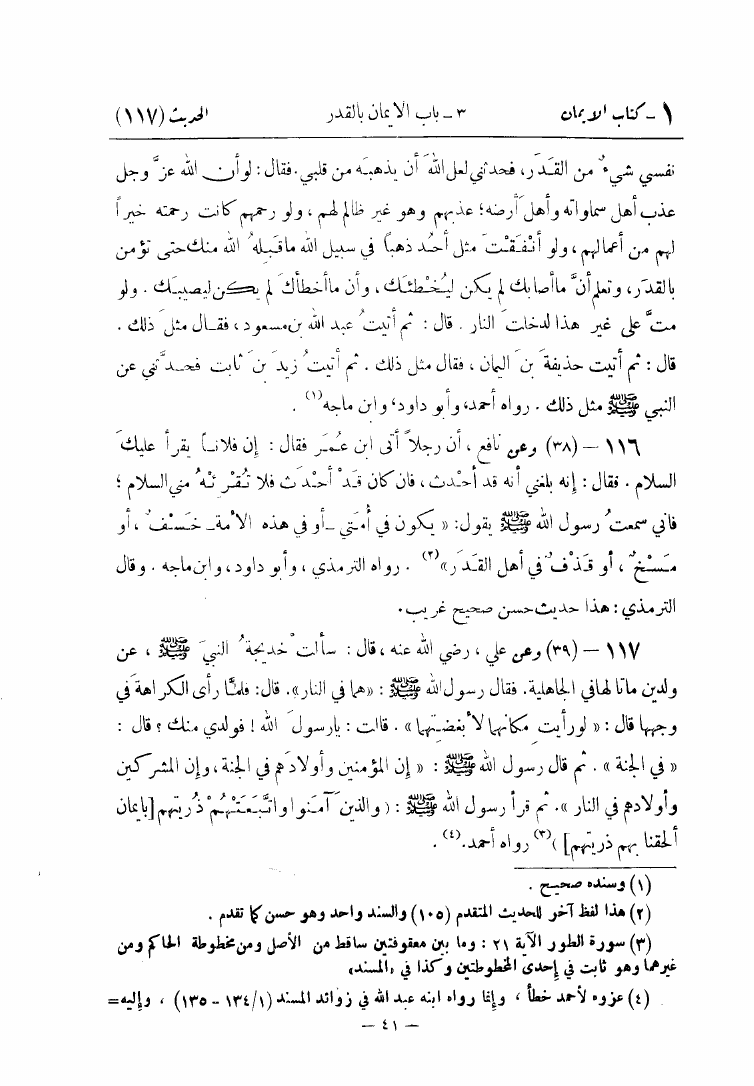 ١ - كتاب الإيمان ٣ - باب الايمان بالقدر الحديث (١١٧)
نفسي شيءٌ من القَدَر، فحدثني لعل اللهَ أن يذهبه من قلبي. فقال: لو أن الله عزَّ وجل
عذب أهل سماواته وأهل أرضه؛ عذبهم وهو غير ظالم لهم، ولو رحمهم كانت رحمته خيراً
لهم من أعمالهم، ولو أنْفَقْتَ مثل أُحُد ذهباً في سبيل الله ما قَبِلهُ الله منك حتى تؤمن
بالقَدَر، وتعلم أنَّ ما أصابك لم يكن ليُخْطئَك، وأن ما أخطأكَ لم يكن ليصيبَك. ولو
متَّ على غير هذا لدخلتَ النار. قال: ثم أتيتُ عبد الله بن مسعود، فقال مثلَ ذلك.
قال: ثم أتيت حذيفةَ بنَ اليمان، فقال مثل ذلك. ثم أتيتُ زيدَ بنَ ثابت فحدَّثني عن
النبي ﷺ مثل ذلك. رواه أحمد، وأبو داود، وابن ماجه(١).
١١٦ - (٣٨) وعن نافع، أن رجلاً أتى ابن عُمَر فقال: إن فلاناً يقرأ عليكَ
السلام. فقال: إنه بلغني أنه قد أحْدث، فان كان قَدْ أحْدَث فلا تُقْرئْهُ مني السلام؛
فاني سمعتُ رسول الله ﷺ يقول: «يكون في أُمَّتي -أو في هذه الأمة- خَسْفٌ، أو
مَسْخٌ، أو قَذْفٌ في أهل القَدَر»(٢). رواه الترمذي، وأبو داود، وابن ماجه. وقال
الترمذي: هذا حديث حسن صحيح غريب.
١١٧ - (٣٩) وعن علي، رضي الله عنه، قال: سألتْ خديجةُ النبيَّ ﷺ، عن
ولدين ماتا لها في الجاهلية. فقال رسول الله ﷺ: «هما في النار». قال: فلمَّا رأى الكراهة في
وجهها قال: «لو رأيتِ مكانهما لأبغضتِهما». قالت: يا رسولَ الله! فولدي منك؟ قال:
«في الجنة». ثم قال رسول الله ﷺ: «إن المؤمنين وأولادهم في الجنة، وإن المشركين
وأولادهم في النار». ثم قرأ رسول الله ﷺ: (والذين آمَنُوا واتَّبَعَتْهُمْ ذُريتهم [بايمان
ألحقنا بهم ذريتهم])(٣) رواه أحمد.(٤).
(١) وسنده صحيح.
(٢) هذا لفظ آخر للحديث المتقدم (١٠٥) والسند واحد وهو حسن كما تقدم.
(٣) سورة الطور الآية ٢١: وما بين معقوفتين ساقط من الأصل ومن مخطوطة الحاكم ومن
غيرهما وهو ثابت في إحدى المخطوطتين وكذا في «المسند»
(٤) عزوه لأحمد خطأ، وإنما رواه ابنه عبد الله في زوائد المسند (١/١٣٤ - ١٣٥)، وإليه=
- ٤١ -